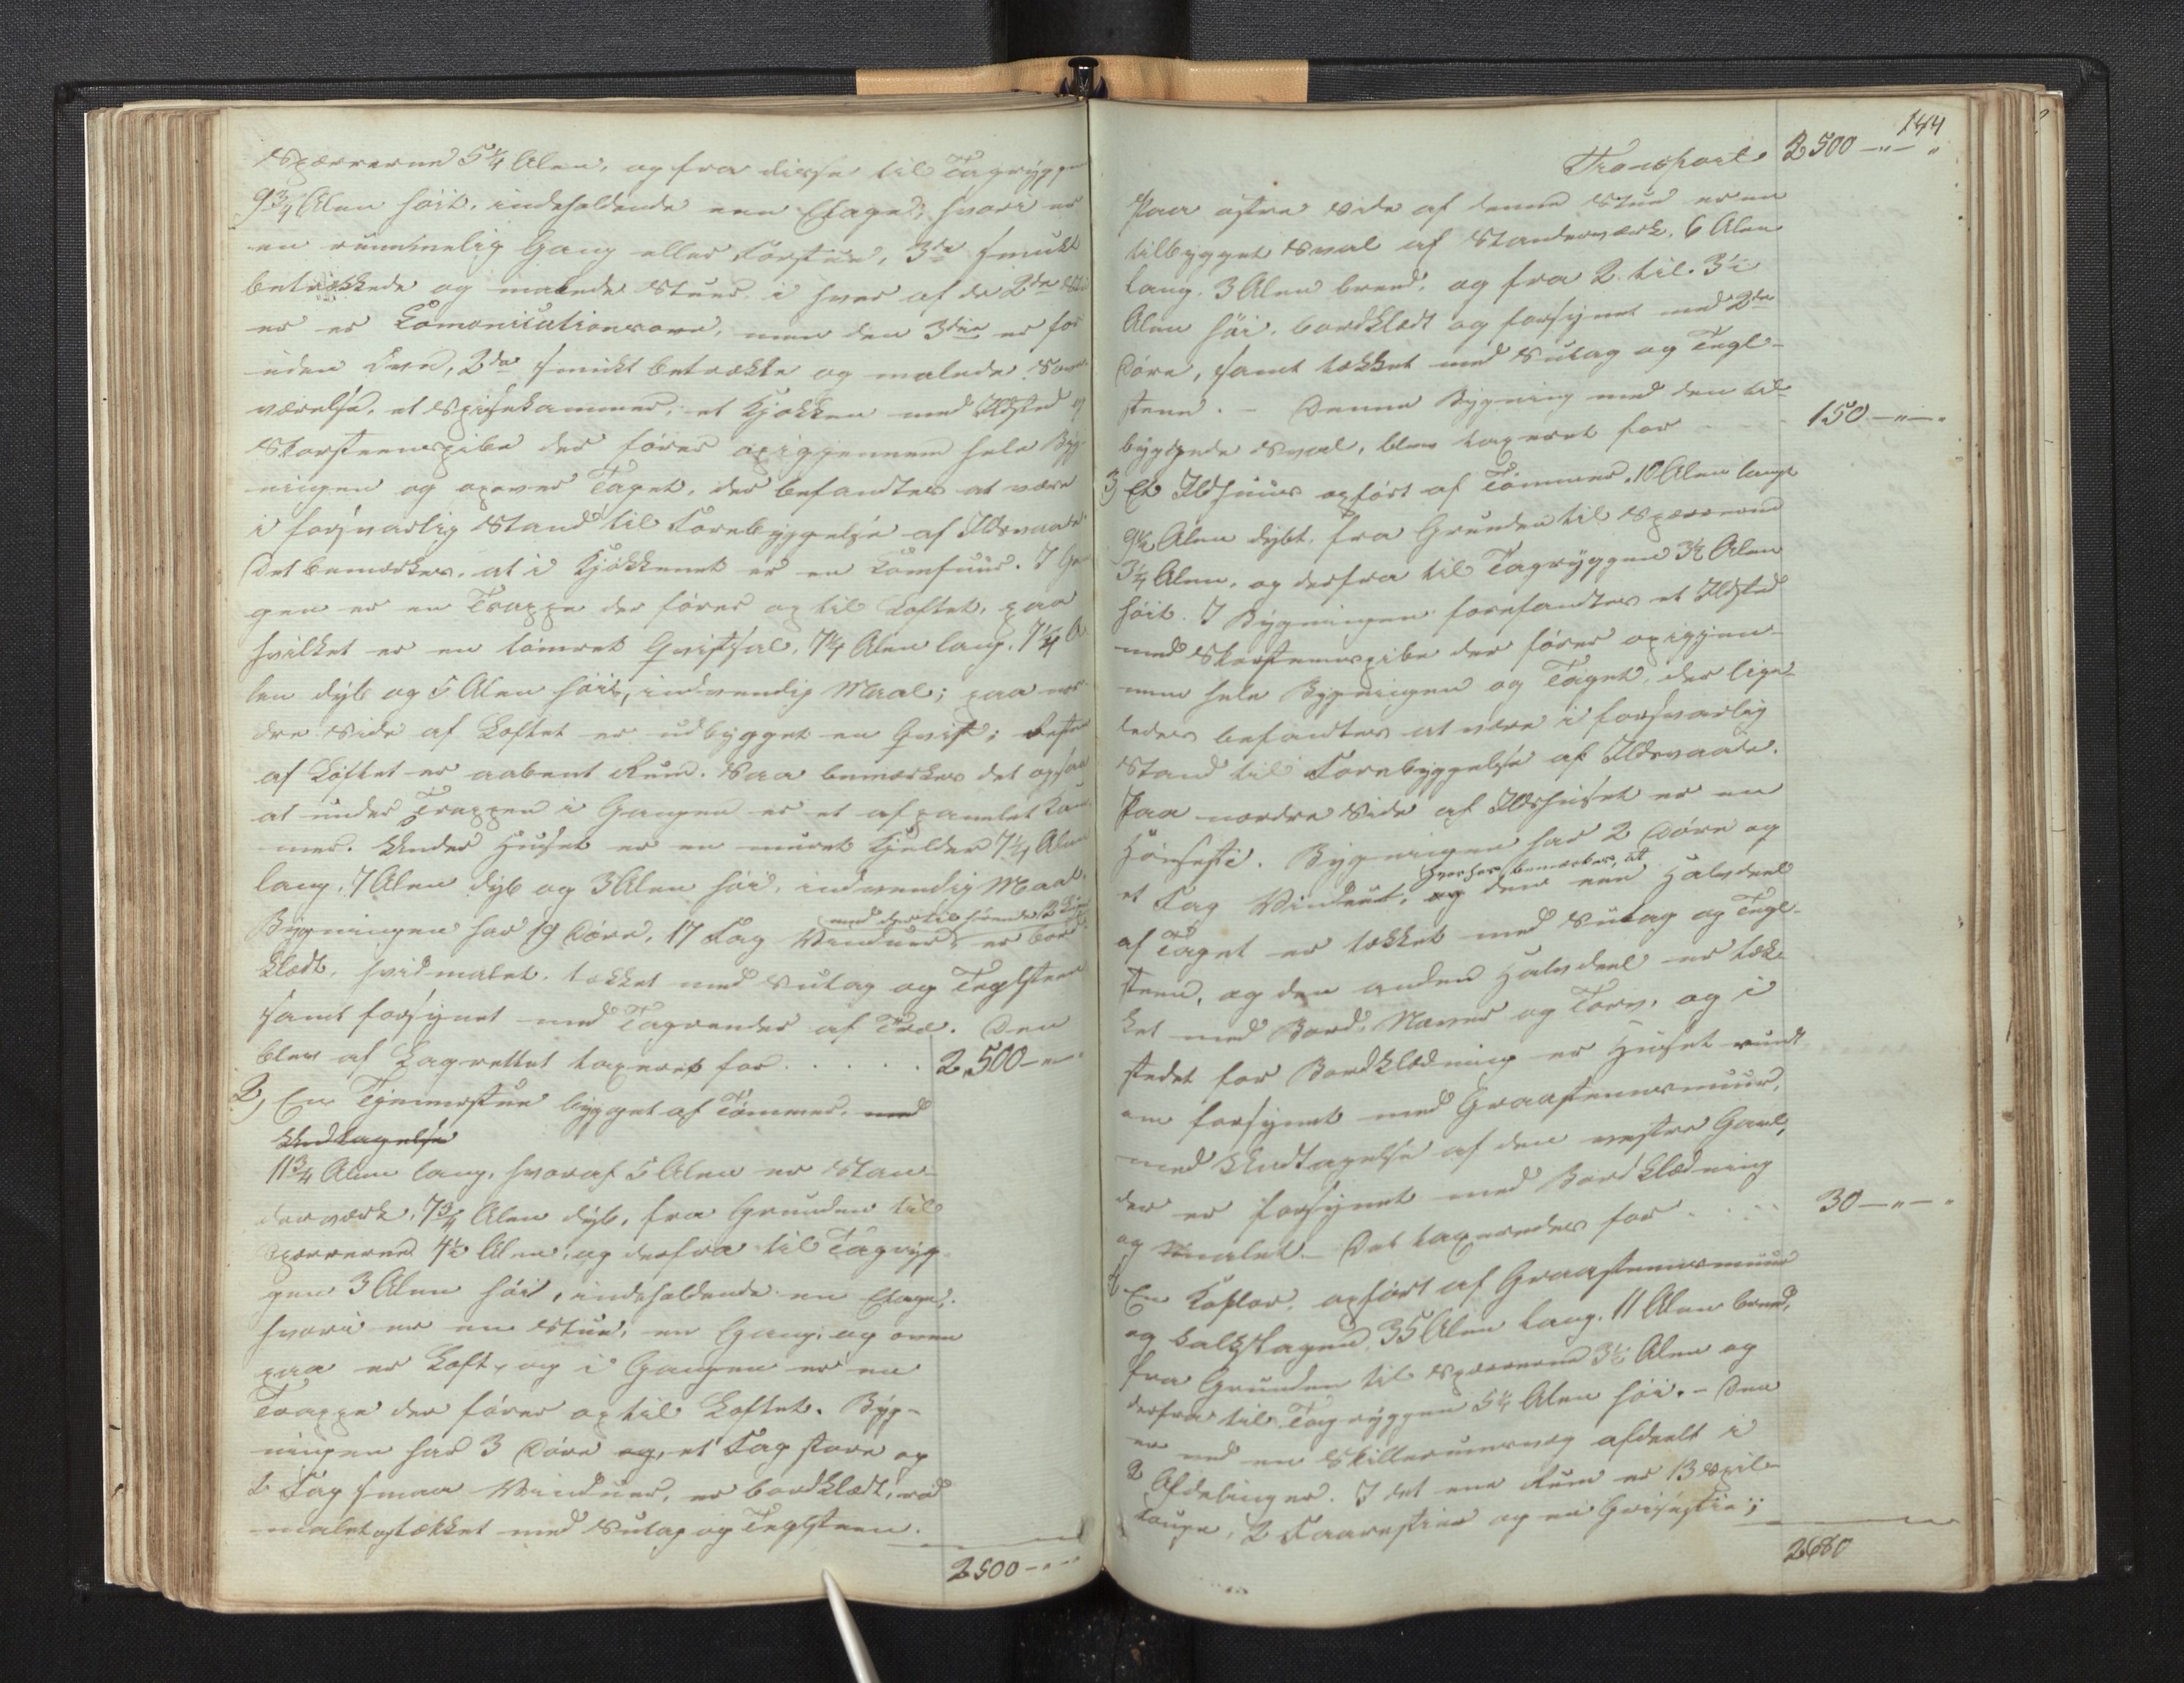 Spærrerne 5 1/4 Alen, og fra disse til Tagryggen
9 3/4 Alen høit, indeholdende een Etage, hvori er
en rummelig Gang eller Forstue, 3de smukt
betrækkede og malede Stuer, i hver af de 2de
er er Comonicationsovn, men den 3die er for
uden Ovn, 2de smukt betrækte og malede Sove
værelse, et Spisekammer, et Kjøkken med Ildsted og
Skorsteenspibe der fører opigjennem hele Byg-
ningen og opover Taget, der befandtes at være
i forsvarlig Stand til Forebyggelse af Ildsvaade
Det bemærkes, at i Kjøkkenet er en Komfuur. I Gan-
gen er en Trappe der fører op til Loftet, paa
hvilket er en tømret Qvistsal, 7 1/4 Alen lang, 7 1/4 A
len dyb og 5 Alen høit, indvendig Maal; paa nor-
dre Side af Loftet er udbygget en Qvist; Resten
af Loftet er aabent Rum. Saa bemærkes det ogsaa
at under Trappen i Gangen er et afpanelet Kam-
mer. Under Huset er en muret Kjelder 7 1/4 Alen
lang, 7 Alen dyb og 3 Alen høi, indvendig Maal.
med dertil hørende 2
Bygningen har 19 Døre, 17 Fag Vinduer, er bord
klædt, hvidmalet, tækket med Sutag og Teglsteen
samt forsynet med Tagrender af Træ. Den
blev af Lagrettet taxeret for . . . . . 2,500 – " –
2, En Tjenerstue bygget af Tømmer, med
Undtagelse
11 3/4 Alen lang, hvoraf 5 Alen er Stan-
derværk, 7 3/4 Alen dyb, fra Grunden til
Spærrerne 4 1/2 Alen, og derfra til Tagryg-
gen 3 Alen høit, indeholdende en Etage,
hvori er en Stue, en Gang, og oven
paa er Loft, og i Gangen er en
Trappe der fører op til Loftet. Byg-
ningen har 3 Døre og, et Fag store og
2 Fag smaa Vinduer, er bordklædt, rød
malet og tækket med Sutag og Teglsteen.
2500 – " –
144
Transport 2500 – " – "
Paa østre Side af denne Stue er en
tilbygget Sval af Standerværk, 6 Alen
lang, 3 Alen breed, og fra 2 til 3 1/2
Alen høi, bordklædt og forsynet med 2de
Døre, samt tækket med Sutag og Tegl-
steen. – Denne Bygning med den til-
byggede Sval, blev taxeret for 150 – " – "
3, Et Ildhuus opført af Tømmer, 10 Alen langt
9 1/2 Alen dybt, fra Grunden til Spærrerne
3 1/4 Alen, og derfra til Tagryggen 3 1/2 Alen
høit. I Bygningen forefandtes et Ildsted
med Skorsteenspibe der fører opigjen-
nem hele Bygningen og Taget, der lige-
ledes befandtes at være i forsvarlig
Stand til Forebyggelse af Ildsvaade.
Paa nordre Side af Ildhuset er en
Hønsesti. Bygningen har 2 Døre og
hvorhos bemærkes, at
et Fag Vinduer, og den ene Halvdeel
af Taget er tækket med Sutag og Tegl-
steen, og den anden Halvdeel er tæk-
ket med Bord, Næver og Torv, og i
stedet for Bordklædning er Huset rundt
om forsynet med Graasteensmuur,
med Undtagelse af den vestre Gavl,
der er forsynet med Bordklædning
og malet. – Det taxeredes for . . . 30 – " – "
4 En Koflor, opført af Graasteensmuur
og kalkslagen, 35 Alen lang, 11 Alen breed,
fra Grunden til Spærrerne 3 1/2 Alen og
derfra til Tagryggen 5 1/4 Alen høi. – Den
er ved en Skillerumsvæg afdeelt i
2 Afdelinger. I det ene Rum er 13 Spil-
touge, 2 Faarestier og en Grisestie;
2680